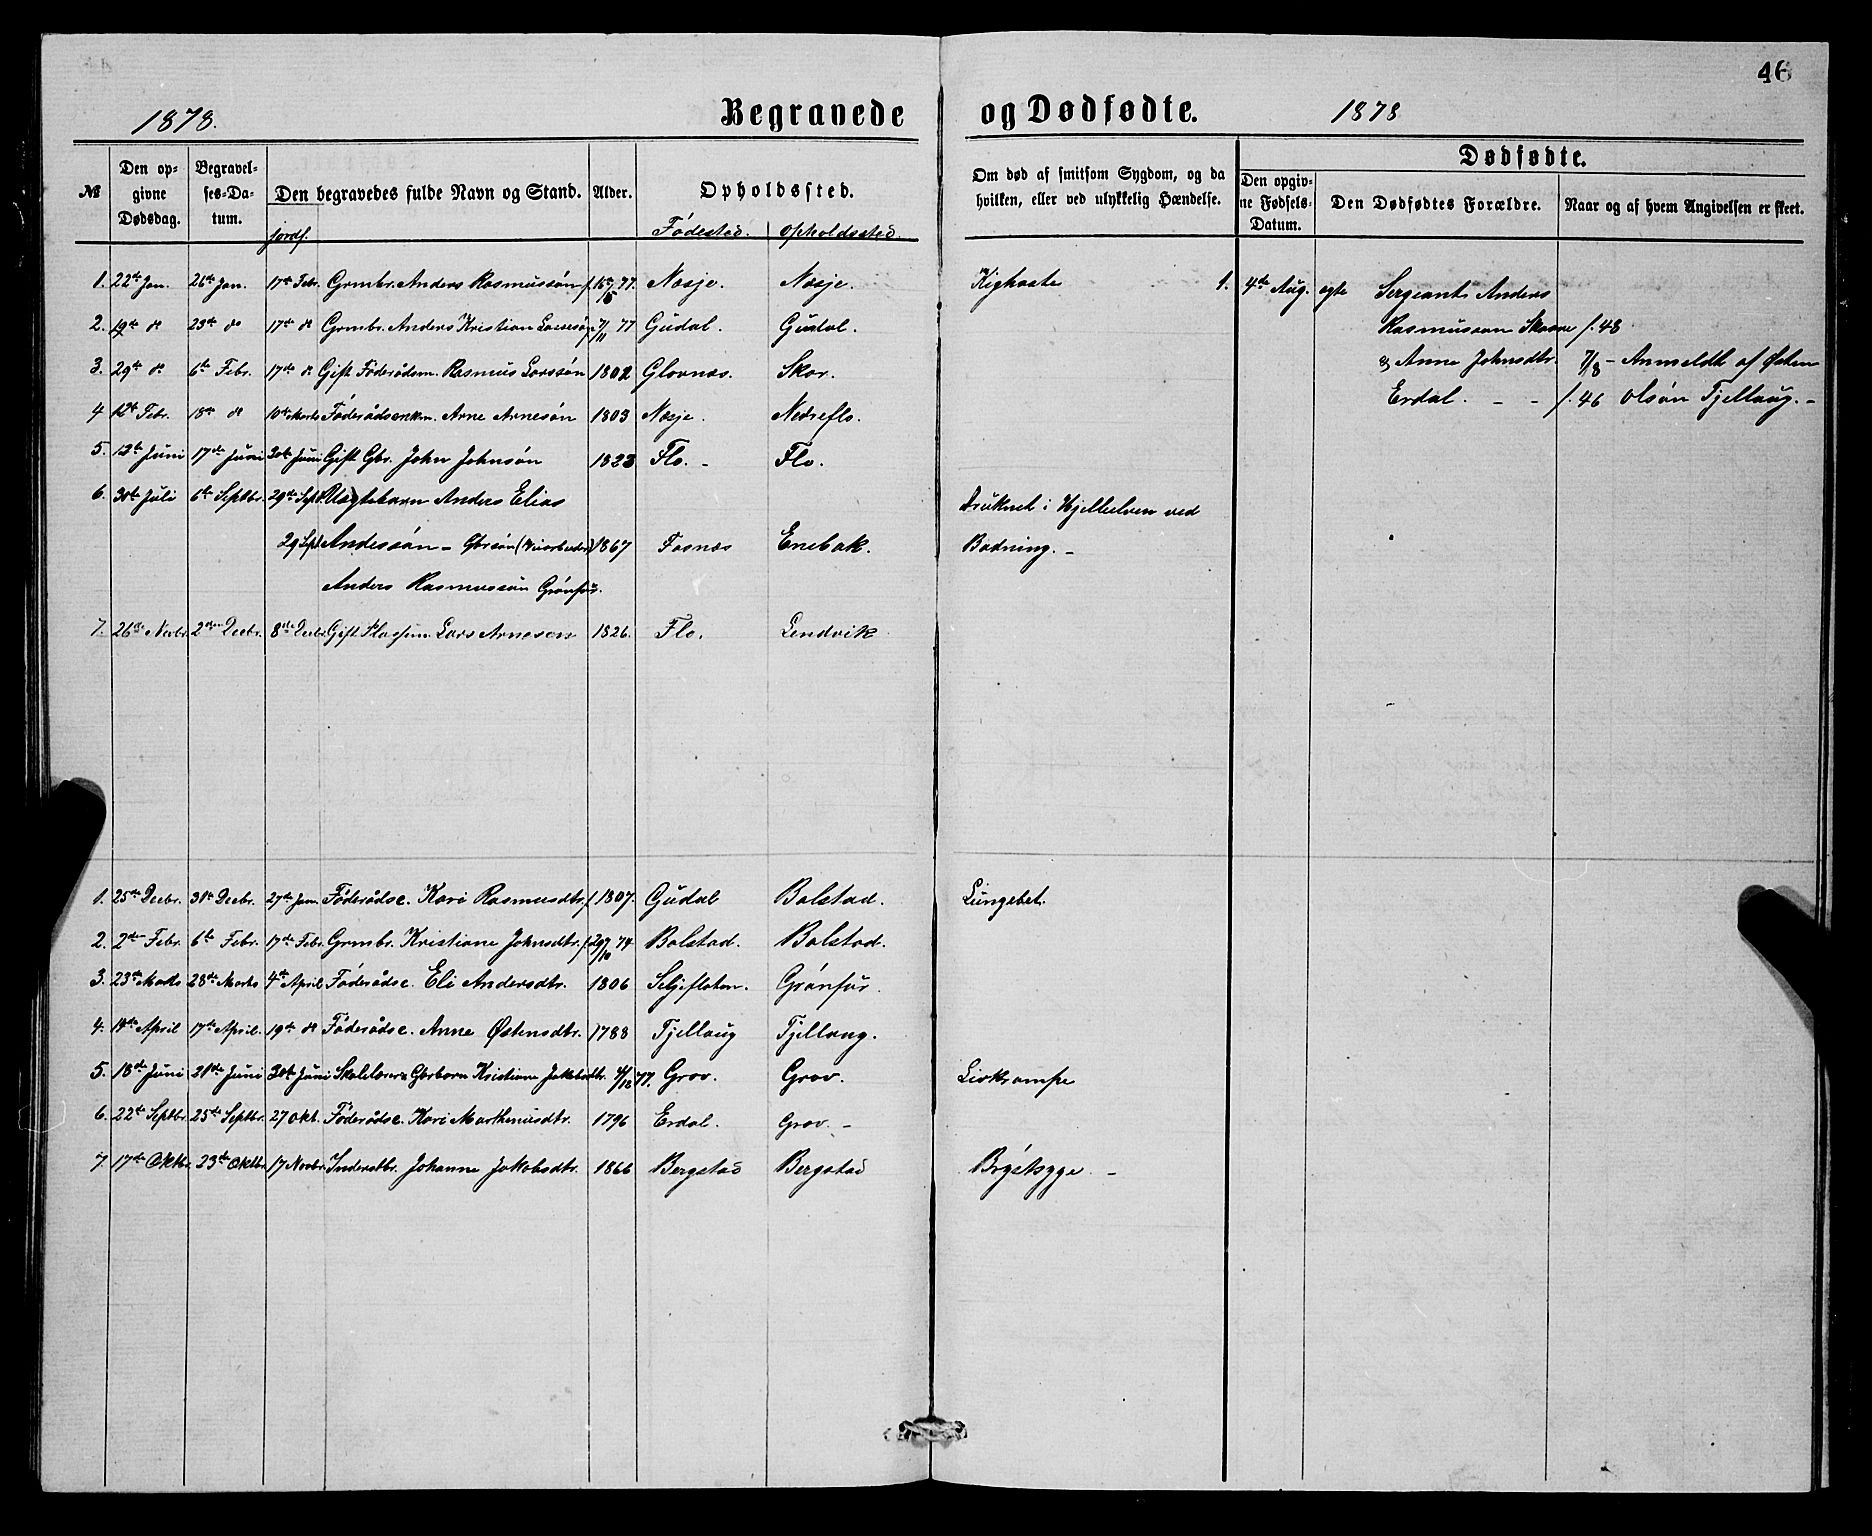 46
1878. Begravede og Dødfødte. 1878
№ Den opgivne Dødsdag. Begravelses-Datum. Den begravedes fulde Navn og Stand. Alder. Opholdssted. Om død af smitsom Sygdom, og da hvilken, eller ved ulykkelig Hændelse. Dødfødte.
Den opgivne Fødsels-Datum. Den Dødfødtes Forældre. Naar og af hvem Angivelsen er skeet.
jordf. Fødested. Opholdssted.
1. 22de Jan. 26de Jan. 17de Febr. Grmbr. Anders Rasmussøn f. 16/5 77. Nesje. Nesje. Kighoste 1. 4de Aug. ægte Sergeant Anders
Rasmusson Skaare f. 48
2. 19de do 23de do 17de do Grmbr. Anders Kristian Larssøn 7/11 77 Gudal. Gudal.
& Anne Johnsdtr. 7/8 - Anmeldt af Østen
3. 29de do 6te Febr. 17de do Gift Føderådsm. Rasmus Larssøn 1802 Glovnæs. Skor.
Erdal. - - f. 46 Olsøn Tjellaug. -
4 12te Febr. 18de do 10de Marts Føderådsenkm. Arne Arnesøn 1803 Nesje. Nedreflo.
5. 13de Juni 17de Juni 30te Juni Gift Gbr. John Johnsøn 1823 Flo. - Flo.
6. 30te Juli 6te Septbr. 29de Sept. Uægtebarn Anders Elias Druknet i Hjelleelven ved
29 Sept Anderssøn - Gbrsøn 1867 Fosnæs Enebak. Badning. -
Anders Rasmussøn Grønfur.
7. 26de Novbr. 2den Decbr. 8de Decbr. Gift Lars Arneson 1826. Flo. Lendvik
1. 25de Decbr. 31te Decbr. 27de Jan. Føderådse. Kari Rasmusdtr. f. 1807. Gudal Bolstad. Lungebet.
2. 2den Febr. 6te Febr. 17de Febr. Grmbr. Kristiane Johnsdtr. f. 29/10 74 Bolstad. Bolstad.
3. 23de Marts 28de Marts 4de April Føderådse. Eli Andersdtr. 1806 Seljefloten. Grønfur.
4. 14de April 17de April. 19de do Føderådse. Anne Østensdtr. 1788 Tjellaug Tjellaug.
5. 18de Juni 21de Juni 30te Juni Skolelærer Gbrbarn Kristiane Jakobsdtr. 4/12 77. Grov. Grov. Livkrampe
6. 22de Septbr. 25de Septbr. 27 Okt. Føderådse. Kari Marthinusdtr. 1796 Erdal. Grov. -
7 17de Oktbr. 23de Oktbr. 17 Novbr. Inderstbr. Johanne Jakobsdtr. 1866 Bergstad Bergstad Brystsyge. -